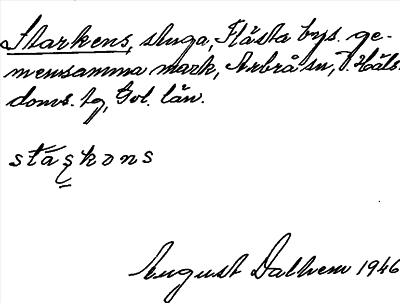 Starkens, stuga, Flästa bys. ge-
mensamma mark, Arbrå sn, V. Häls.
doms. tg, Gvl. län.
stąşkɔns
August Dalhem 1946